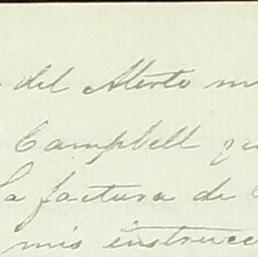 del Alerto
Campbell
La factura de
mis instrucc